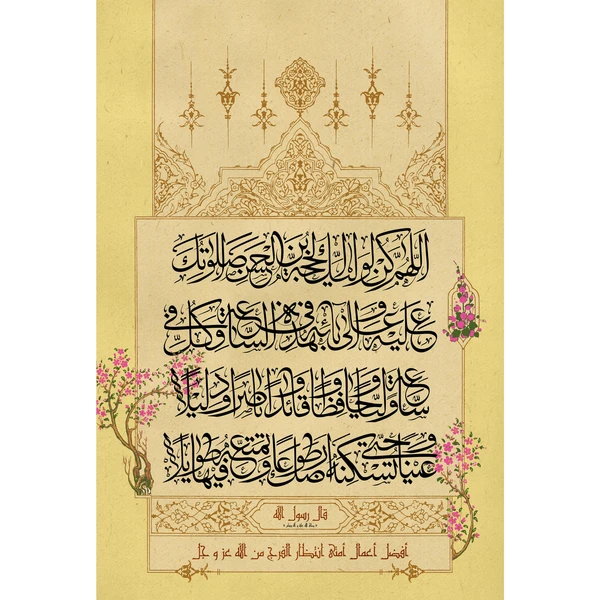 اللّهُمَّ كُنْ لِوَلِيِّكَ الْحُجَّةِ بْنِ الْحَسَنِ صَلَواتُكَ
عَلَيْهِ وَعَلى آبائِهِ فِي هذِهِ السّاعَةِ وَفِي كُلِّ
ساعَةٍ وَلِيّاً وَحافِظاً وَقائِداً وَناصِراً وَدَلِيلاً
وَعَيْناً حَتّى تُسْكِنَهُ أَرْضَكَ طَوْعاً وَتُمَتِّعَهُ فِيها طَوِيلاً
قال رسول الله
أفضل أعمال أمتي انتظار الفرج من الله عز و جل